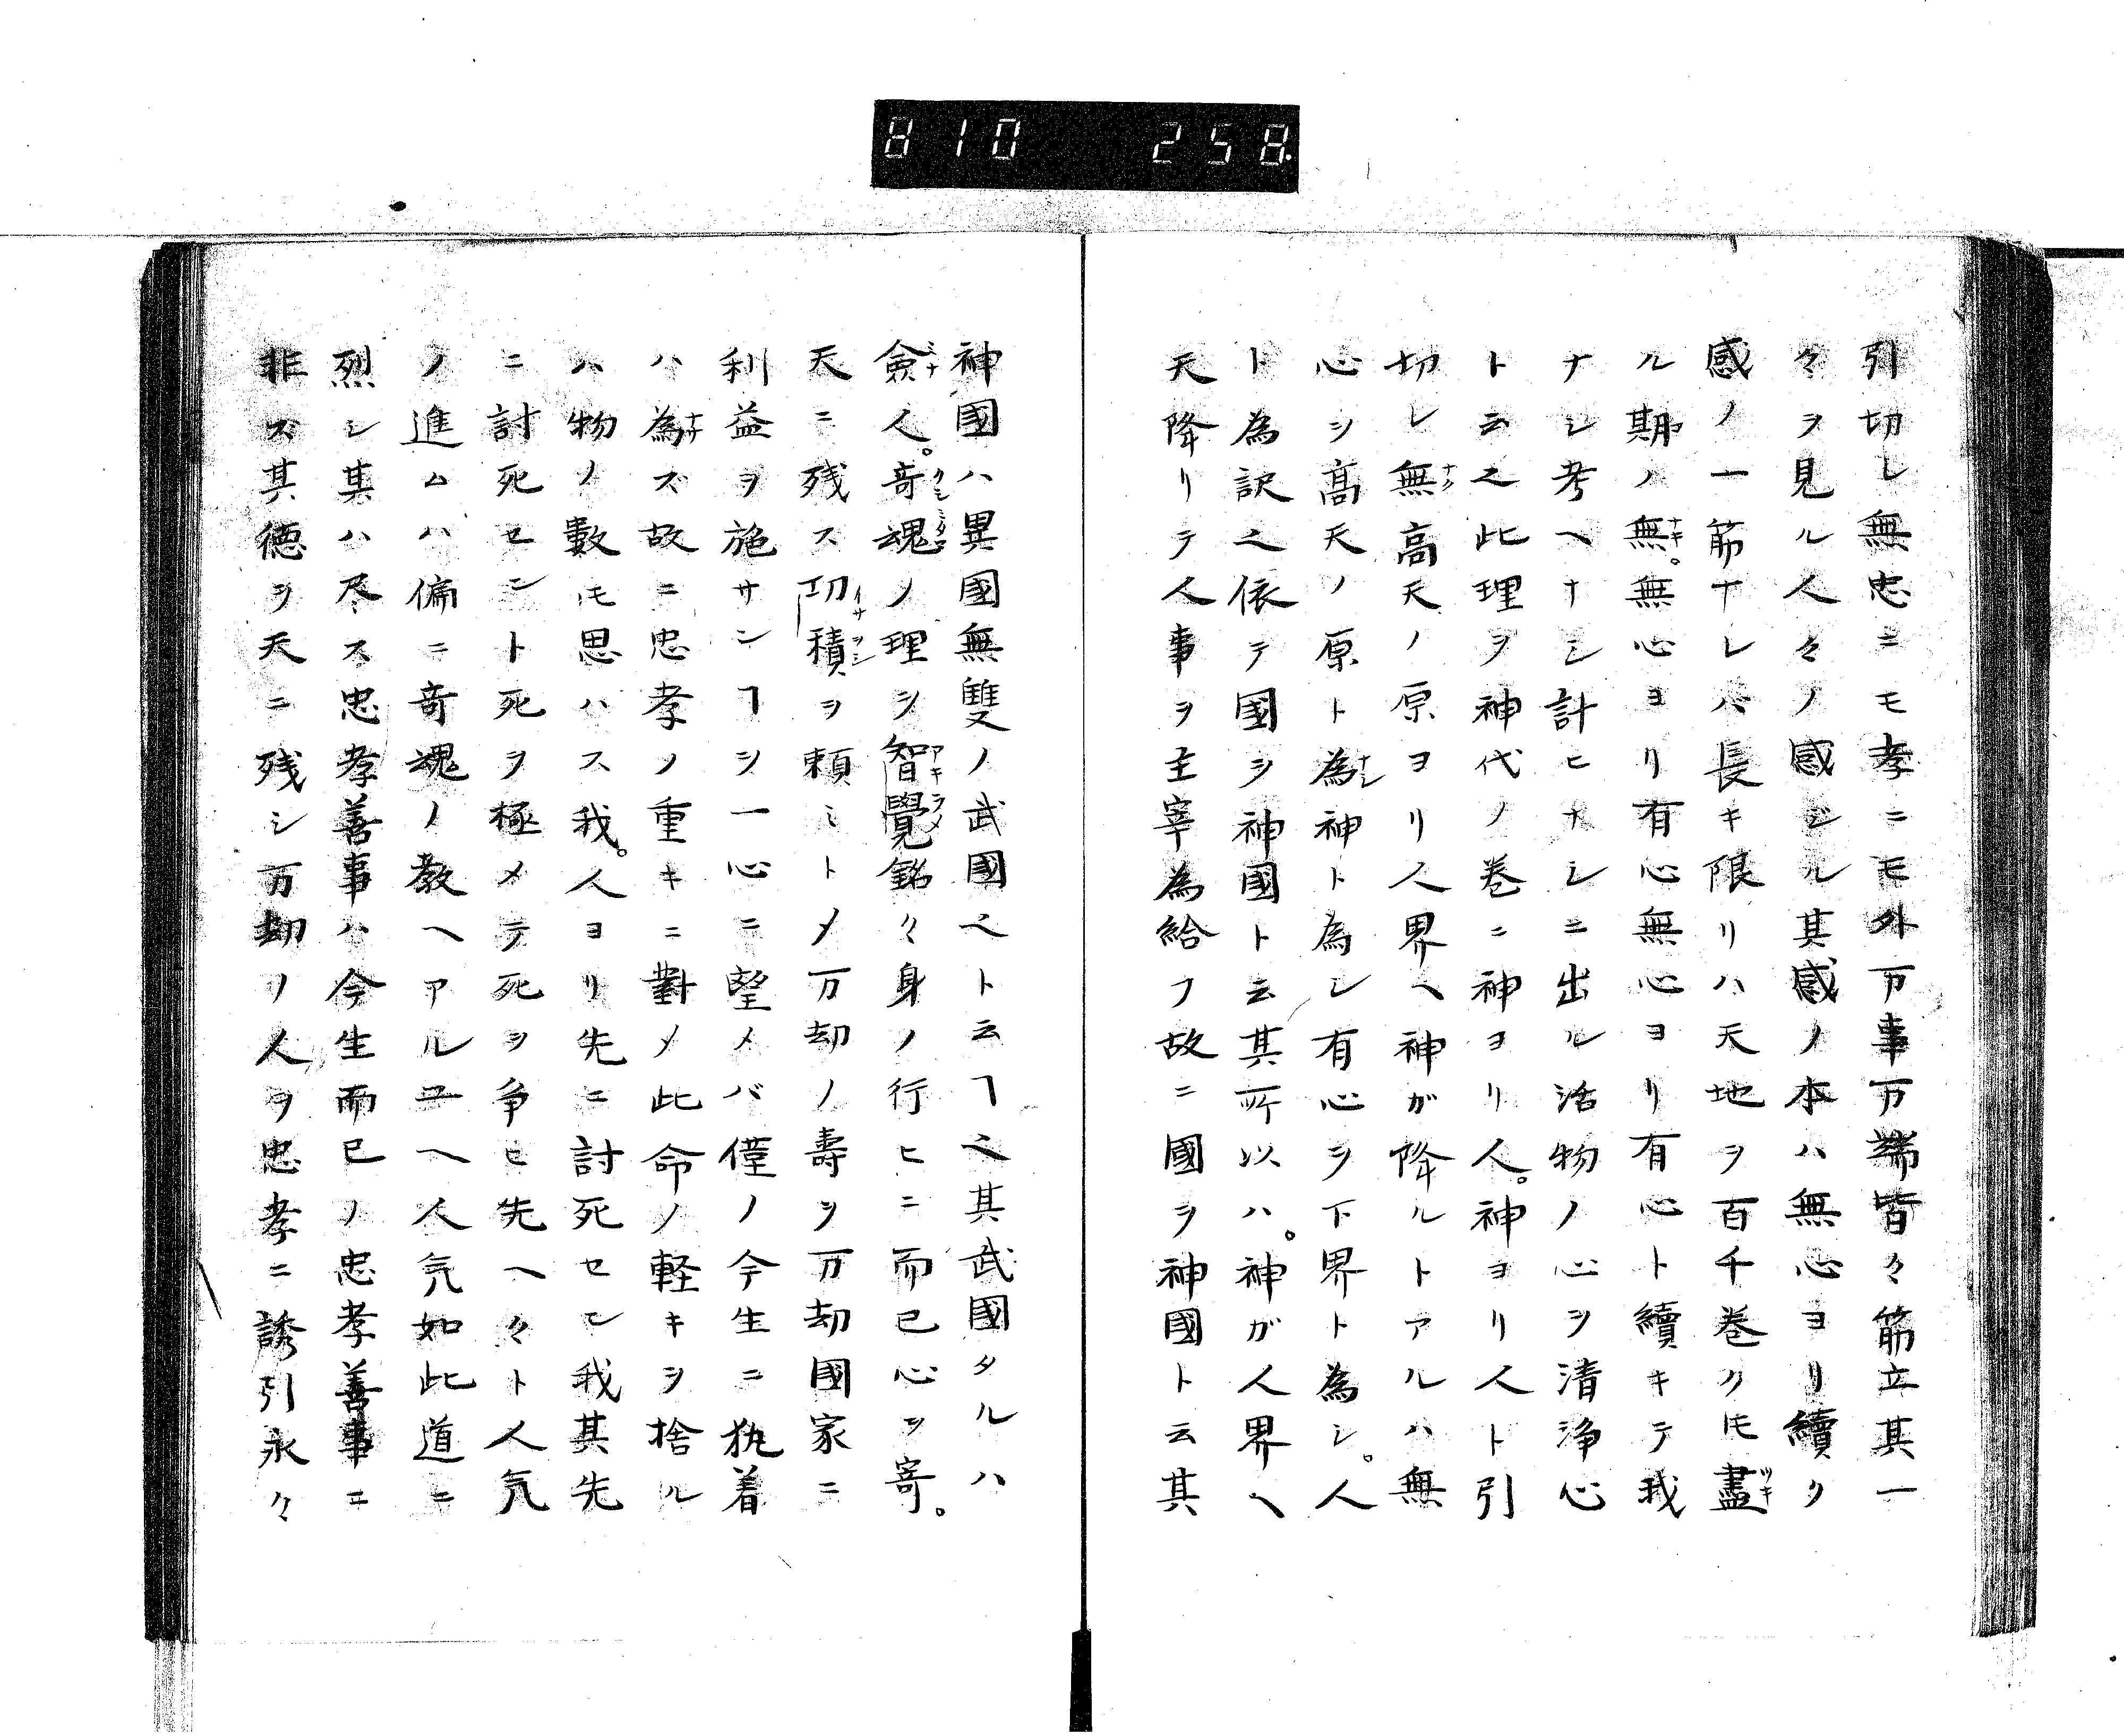 810 258.
引切レ無忠ニモ孝ニモ外万事万端皆々筋立其一
々ヲ見ル人々ノ感ジル其感ノ本ハ無心ヨリ續ク
感ノ一筋ナレバ長キ限リハ天地ヲ百千巻クモ盡ツキ
ル期ノ無ナキ。無心ヨリ有心無心ヨリ有心ト續キテ我
ナシ考ヘナシ計ヒナシニ出ル活物ノ心ヲ清浄心
ト云之此理ヲ神代ノ巻ニ神ヨリ人。神ヨリ人ト引
切レ無ナク高天ノ原ヨリ人界ヘ神ガ降ルトアルハ無
心ヲ高天ノ原ト為ナシ神ト為シ有心ヲ下界ト為シ。人
ト為訳之依テ國ヲ神國ト云其所以ハ。神ガ人界ヘ
天降リテ人事ヲ主宰為給フ故ニ國ヲ神國ト云其
神國ハ異國無雙ノ武國之ト云ヿ之其武國タルハ
僉ミナ人。竒魂クシミタマノ理ヲ智覺アキラメ銘々身ノ行ヒニ而已心ヲ寄。
天ニ残ス功積イサヲシヲ頼ミトメ万劫ノ壽ヲ万劫國家ニ
利益ヲ施サンヿヲ一心ニ望メバ僅ノ今生ニ執着
ハ為ナサズ故ニ忠孝ノ重キニ對メ此命ノ軽キヲ捨ル
ハ物ノ數モ思ハス我。人ヨリ先ニ討死セン我其先
ニ討死セント死ヲ極メテ死ヲ争ヒ先ヘ々ト人気
ノ進ムハ偏ニ竒魂ノ教ヘアルユヘ人気如此道ニ
烈シ其ハ尽ス忠孝善事ハ今生而已ノ忠孝善事ニ
非ズ其徳ヲ天ニ残シ万劫ノ人ヲ忠孝ニ誘引永々